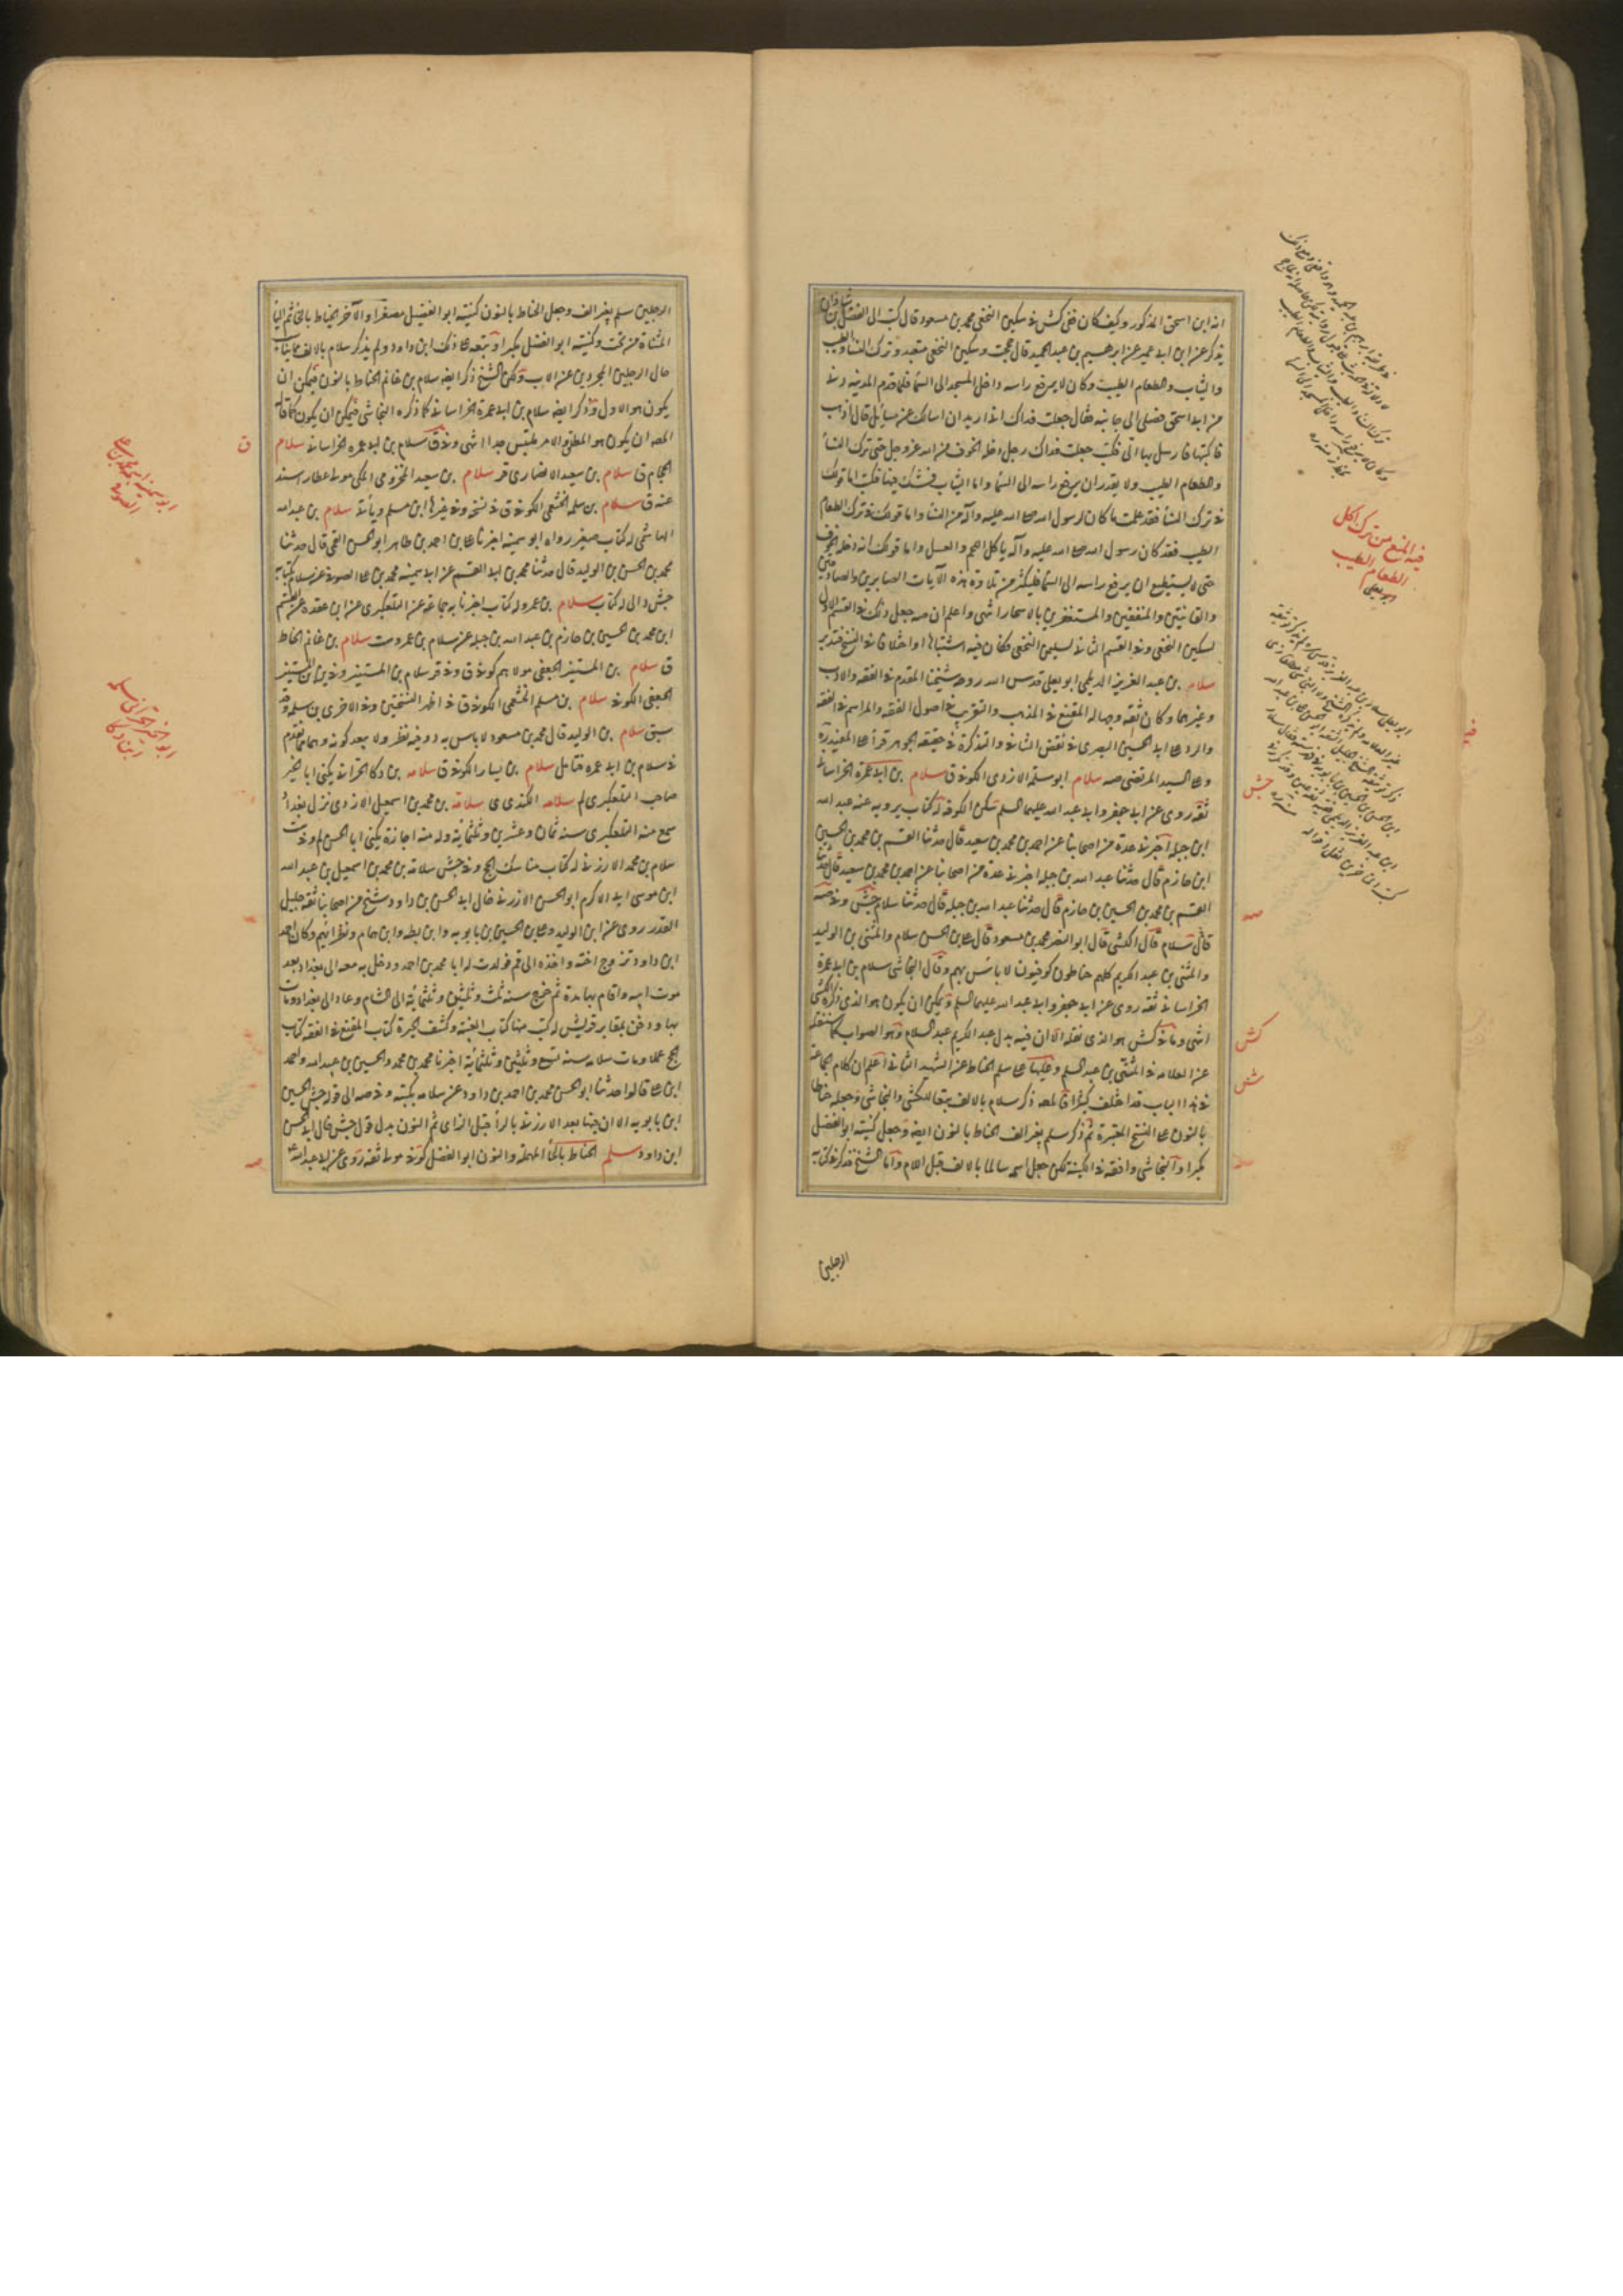 انه ابن اسحق المذكور وكيف كان ففى كش فى سكين النخعى محمد بن مسعود قال كتب الى الفضل بن شاذان
يذكر عن ابن ابى عمير عن ابرهيم بن عبد الحميد قال حججت وسكين النخعى متعبد وترك النسا والطيب
والثياب والطعام الطيب وكان لا يرفع راسه داخل المسجد الى السما فلما قدم المدينه دنا
من ابى اسحق فصلى الى جانبه فقال جعلت فداك انى اريد ان اسالك عن مسايل قال اذهب
فاكتبها وارسل بها الى فكتب جعلت فداك رجل دخله الخوف من الله عز وجل حتى ترك النسأ
والطعام الطيب ولا يقدر ان يرفع راسه الى السمأ واما الثياب فشك فيها فكتب اما قولك
فى ترك النسأ فقد علمت ما كان لرسول الله صلى الله عليه وآله من النسا واما قولك فى ترك الطعام
الطيب فقد كان رسول الله صلى الله عليه وآله ياكل اللحم والعسل واما قولك انه دخله الخوف
حتى لا يستطيع ان يرفع راسه الى السما فليكثر من تلاوة هذه الآيات الصابرين والصادقين
والقانتين والمنفقين والمستغفرين بالاسحار انتهى واعلم ان صه جعل ذلك فى القسم الاول
لسكين النخعى وفى القسم الثانى لسليمن النخعى وكان فيه اشتباها او اختلافا فى النسخ فتدبر
سلار بن عبد العزيز الديلمى ابو يعلى قدس الله روحه شيخنا المقدم فى الفقه والادب
وغيرهما وكان ثقه وجها له المقنع فى المذهب والتقريب فى اصول الفقه والمراسم فى الفقه
والرد على ابى الحسين البصرى فى نقض الشافى والتذكرة فى حقيقه الجوهر قرأ على المفيد ره
وعلى السيد المرتضى صه سلام ابو سلمه الازدى الكوفى ق سلام بن ابى عمرة الخراسانى
ثقه روى عن ابى جعفر وابى عبد الله عليهما السلم سكن الكوفه له كتاب يرويه عنه عبد الله
ابن جبله اخبرنى عدة من اصحابنا عن احمد بن محمد بن سعيد قال حدثنا القسم بن محمد بن الحسين
ابن حازم قال حدثنا عبد الله بن جبله اخبرنى عدة من اصحابنا عن احمد بن محمد بن سعيد قال حدثنا
القسم بن محمد بن الحسين بن حازم قال حدثنا عبد الله بن جبله قال حدثنا سلام جش وفى صه
قال سلام قال الكشى قال ابو النضر محمد بن مسعود قال على بن الحسن سلام والمثنى بن الوليد
والمثنى بن عبد الكريم كلهم حناطون كوفيون لا باس بهم وقال النجاشى سلام بن ابى عمرة
الخراسانى ثقه روى عن ابى جعفر وابى عبد الله عليهما السلم ويمكن ان يكون هو الذى ذكره الكشى
انتهى وما فى كش هو الذى نقله الا ان فيه بدل عبد الكريم عبد السلام وهو الصواب كما سننقله
عن العلامه فى المثنى بن عبد السلم وعليها على سلم الحناط عن الشهيد الثانى اعلم ان كلام الجماعة
فى هذا الباب قد اختلف كثيرا فالمصه ذكر سلام بالالف متبعا للكشى والنجاشى وجعله حناطا
بالنون على النسخ المعتبرة ثم ذكر سلم بغير الف الحناط بالنون ايضه وجعل كنيته ابو الفضل
مكبرا والنجاشى وافقه فى الكنيه لكن جعل اسمه سالما بالالف قبل اللام واما الشيخ فذكر فى كتابه
الرجلين
فيه المنع من ترك اكل
الطعام الطيب
ابو يعلى
جش
صه
كش
ش
الرجلين سلم بغير الف وجعل الحناط بالنون كنيته ابو الفضيل مصغرا والآخر الخياط بالخا ثم اليا
المثناة من تحت وكنيته ابو الفضل مكبرا وتبعه على ذلك ابن داود ولم يذكر سلام بالالف
حال الرجلين المجردين عن الاب ولكن الشيخ ذكر ايضه سلام بن غانم الحناط بالنون فيمكن ان
يكون هو الاول وذكر ايضه سلام بن ابى عمرة الخراسانى كما ذكره النجاشى فيمكن ان يكون كما قال
المصه ان يكون هو المطلق والامر ملتبس جدا انتهى وفى ق سلام بن ابى عمره الخراسانى سلام
الحجام ق سلام بن سعيد الانصارى قر سلام بن سعيد المخزومى المكى مولى عطار اسند
عنه ق سلام بن سلمه الخثعمى الكوفى ق فى نسخه وفى غيرها ابن مسلم ويأتى سلام بن عبد الله
الهاشمى له كتاب صغير رواه ابو سمينه اخبرنا على بن احمد بن طاهر ابو الحسن القمى قال حدثنا
محمد بن الحسن بن الوليد قال حدثنا محمد بن ابى القسم عن ابى سمينه محمد بن على الصوفى عن سلام بكتابه
جش دالى له كتاب سلام بن عمرو له كتاب اخبرنا به جماعة عن التلعكبرى عن ابن عقده عن القسم
ابن محمد بن الحسين بن حازم بن عبد الله بن جبله عن سلام بن عمرو ست سلام بن غانم الحناط
ق سلام بن المستنير الجعفى مولاهم كوفى ق وفى قر سلام بن المستنير وفى ين ابن المستنير
الجعفى الكوفى سلام بن مسلم الخثعمى الكوفى ق فى اظهر النسختين وفى الاخرى بن سلمه وقد
سبق سلام بن الوليد قال محمد بن مسعود لا باس به د وفيه نظر ولا يبعد كونه وهما مما تقدم
فى سلام بن ابى عمره فتامل سلام بن يسار الكوفى ق سلامه بن ذكا الحرانى يكنى ابا الخير
صاحب التلعكبرى لم سلامه الكندى ى سلامه بن محمد بن اسمعيل الارزنى نزل بغداد
سمع منه التلعكبرى سنه ثمان وعشرين وثلثمائه وله منه اجازة يكنى ابا الحسن لم وفى ست
سلام بن محمد الارزنى له كتاب مناسك الحج وفى جش سلامه بن محمد بن اسمعيل بن عبد الله
ابن موسى ابى الاكرم ابو الحسن الارزنى خال ابى الحسن بن داود شيخ من اصحابنا ثقه جليل
القدر روى عن ابن الوليد وعلى بن الحسين بن بابويه وابن بطه وابن همام ونظرائهم وكان احمد
ابن داود تزوج اخته واخذه الى قم فولدت له ابا محمد بن احمد ودخل به معه الى بغداد بعد
موت ابيه واقام بها مدة ثم خرج سنه ثلث وثلثين وثلثمائه الى الشام وعاد الى بغداد ومات
بها ودفن بمقابر قريش له كتب منها كتاب الغيبة وكشف الحيرة كتاب المقنع فى الفقه كتاب
الحج عملا ومات سلامه سنه تسع وثلثين وثلثمائه اخبرنا محمد بن محمد والحسين بن عبيد الله واحمد
ابن على قالوا حدثنا ابو الحسن محمد بن احمد بن داود عن سلامه بكتبه وفى صه الى قوله جش الحسين
ابن بابويه الا ان فيها بعد الارزنى بالرأ قبل الزاى ثم النون بدل قول جش خال ابى الحسن
ابن داود سلم الحناط بالحأ المهمله والنون ابو الفضل كوفى مولى ثقه روى عن ابى عبد الله ع
ق
ابو سمينه محمد بن على
الصوفى
ابو الخير الحرانى سلامه
ابن ذكا
صه